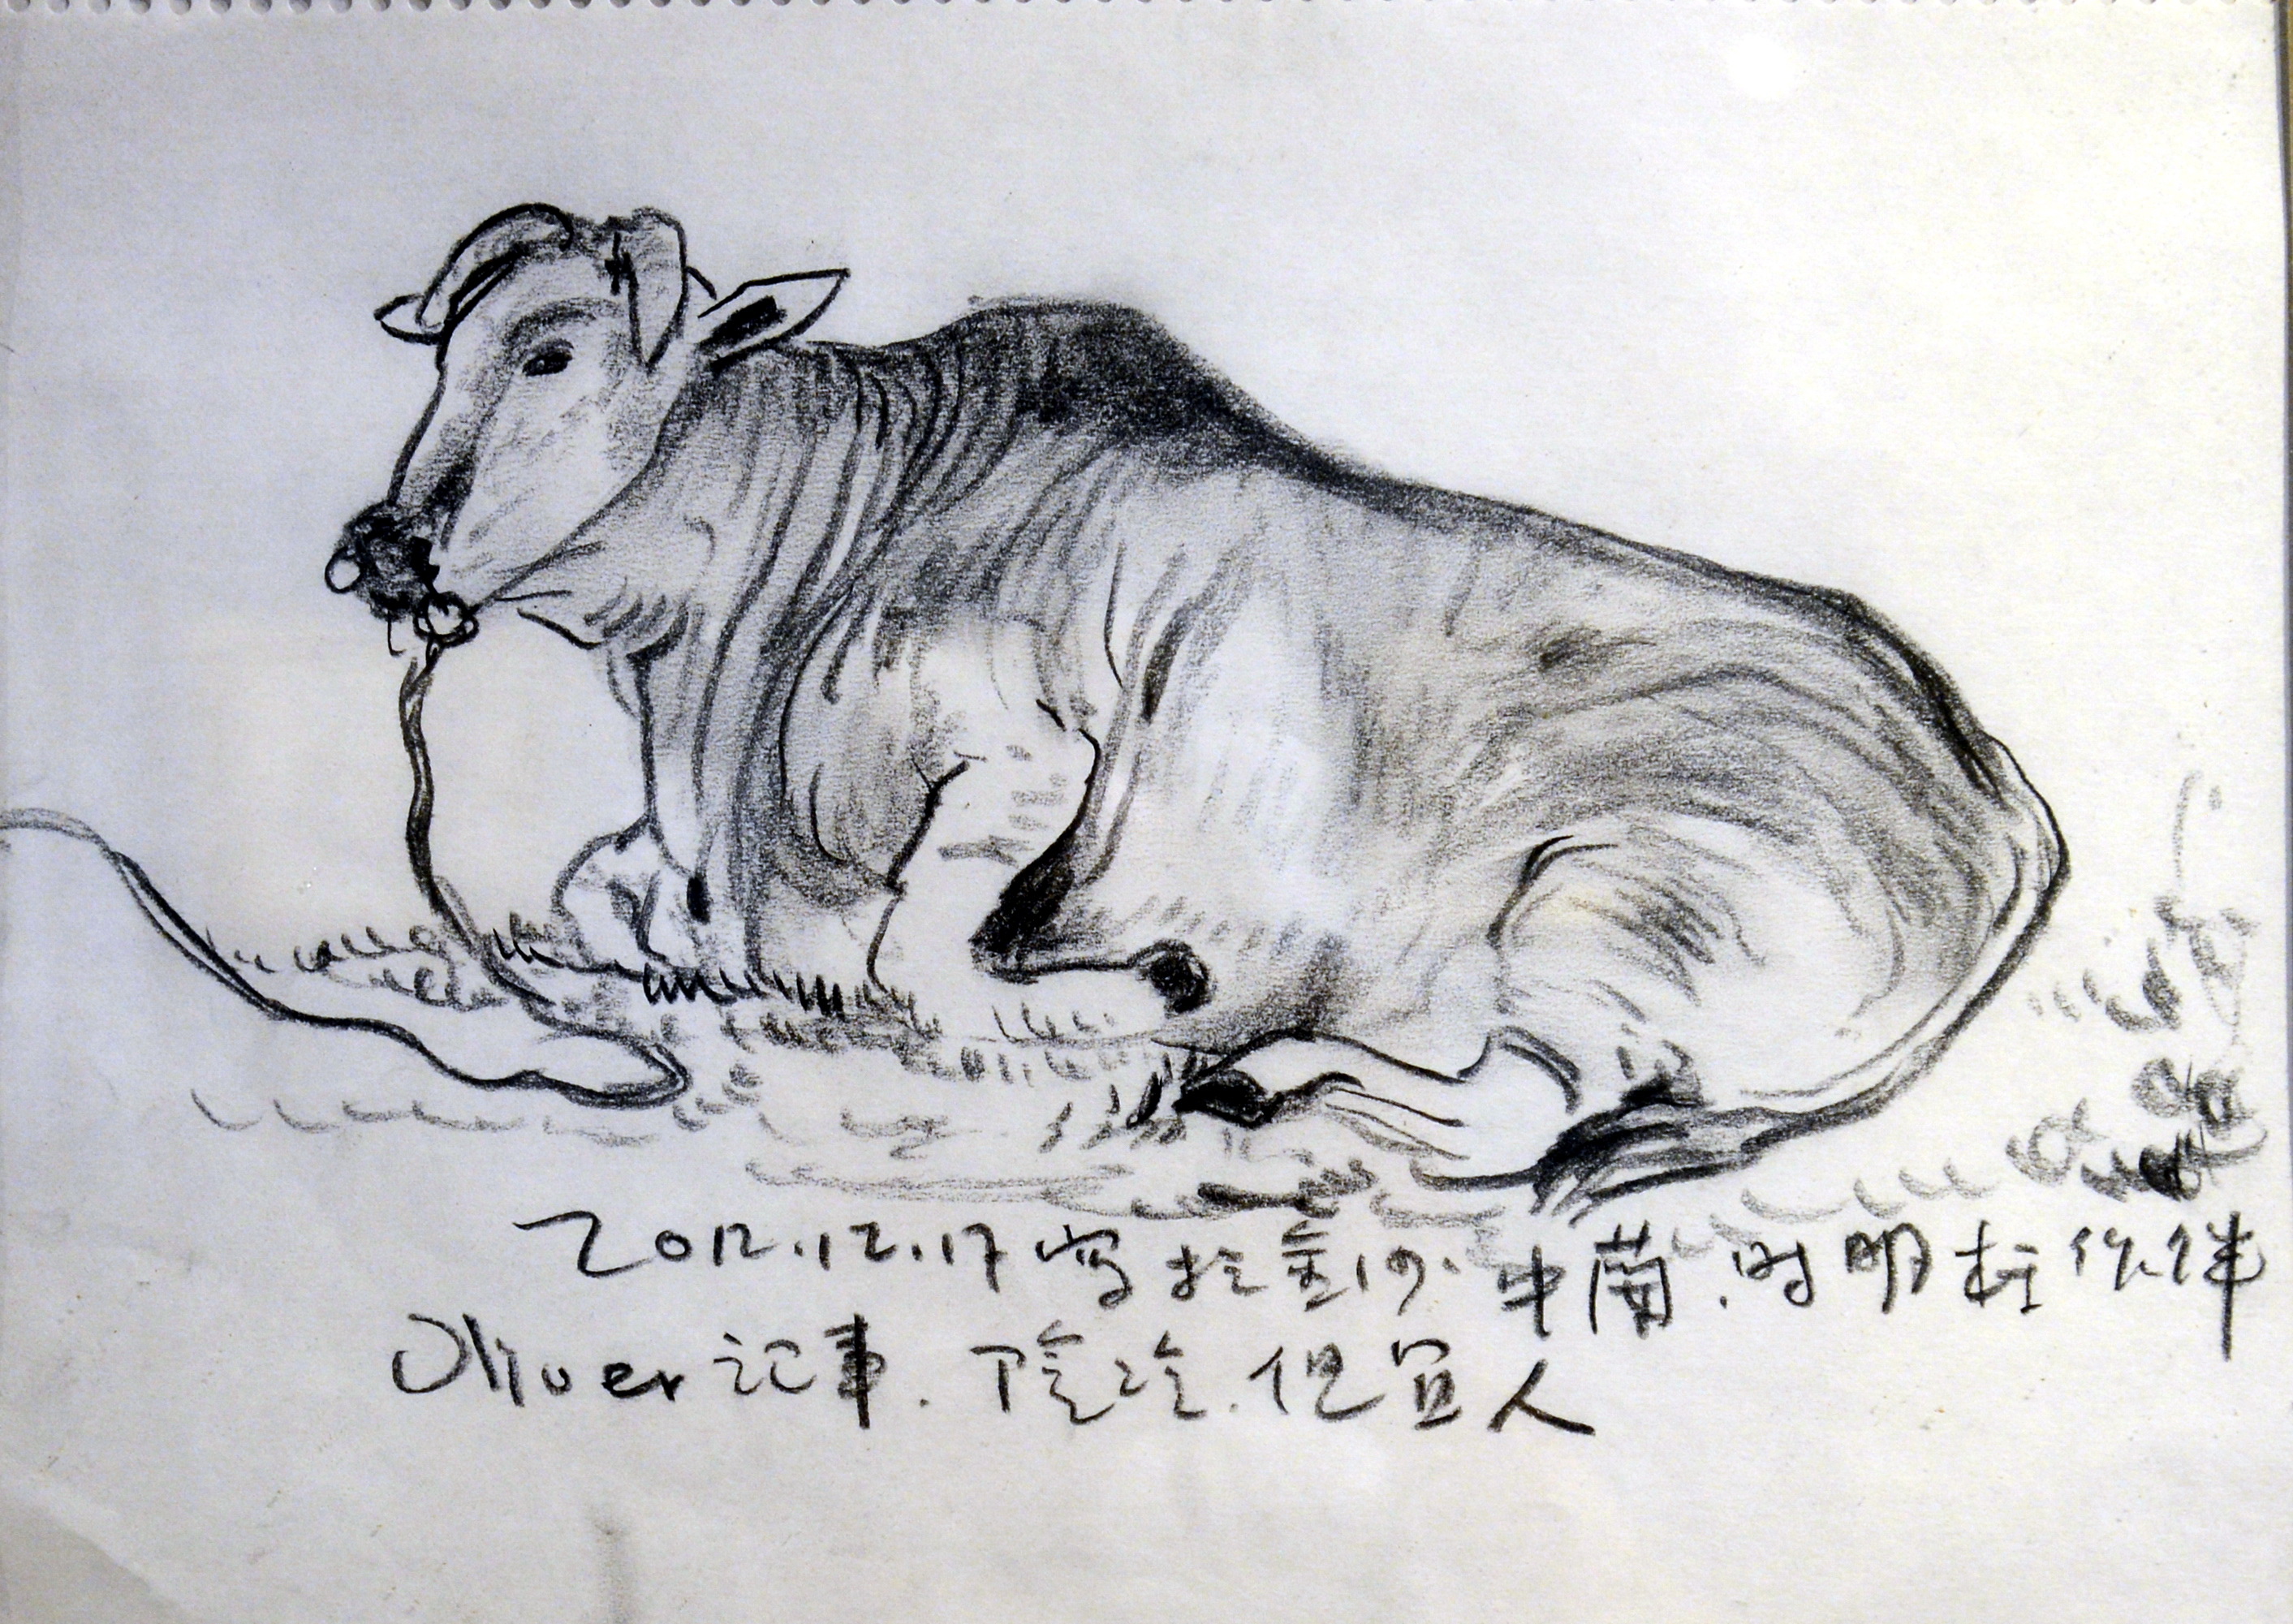 2012.12.17 寫於金门.牛蘭.时明於 伴
Oliver 記事.陰冷.但宜人